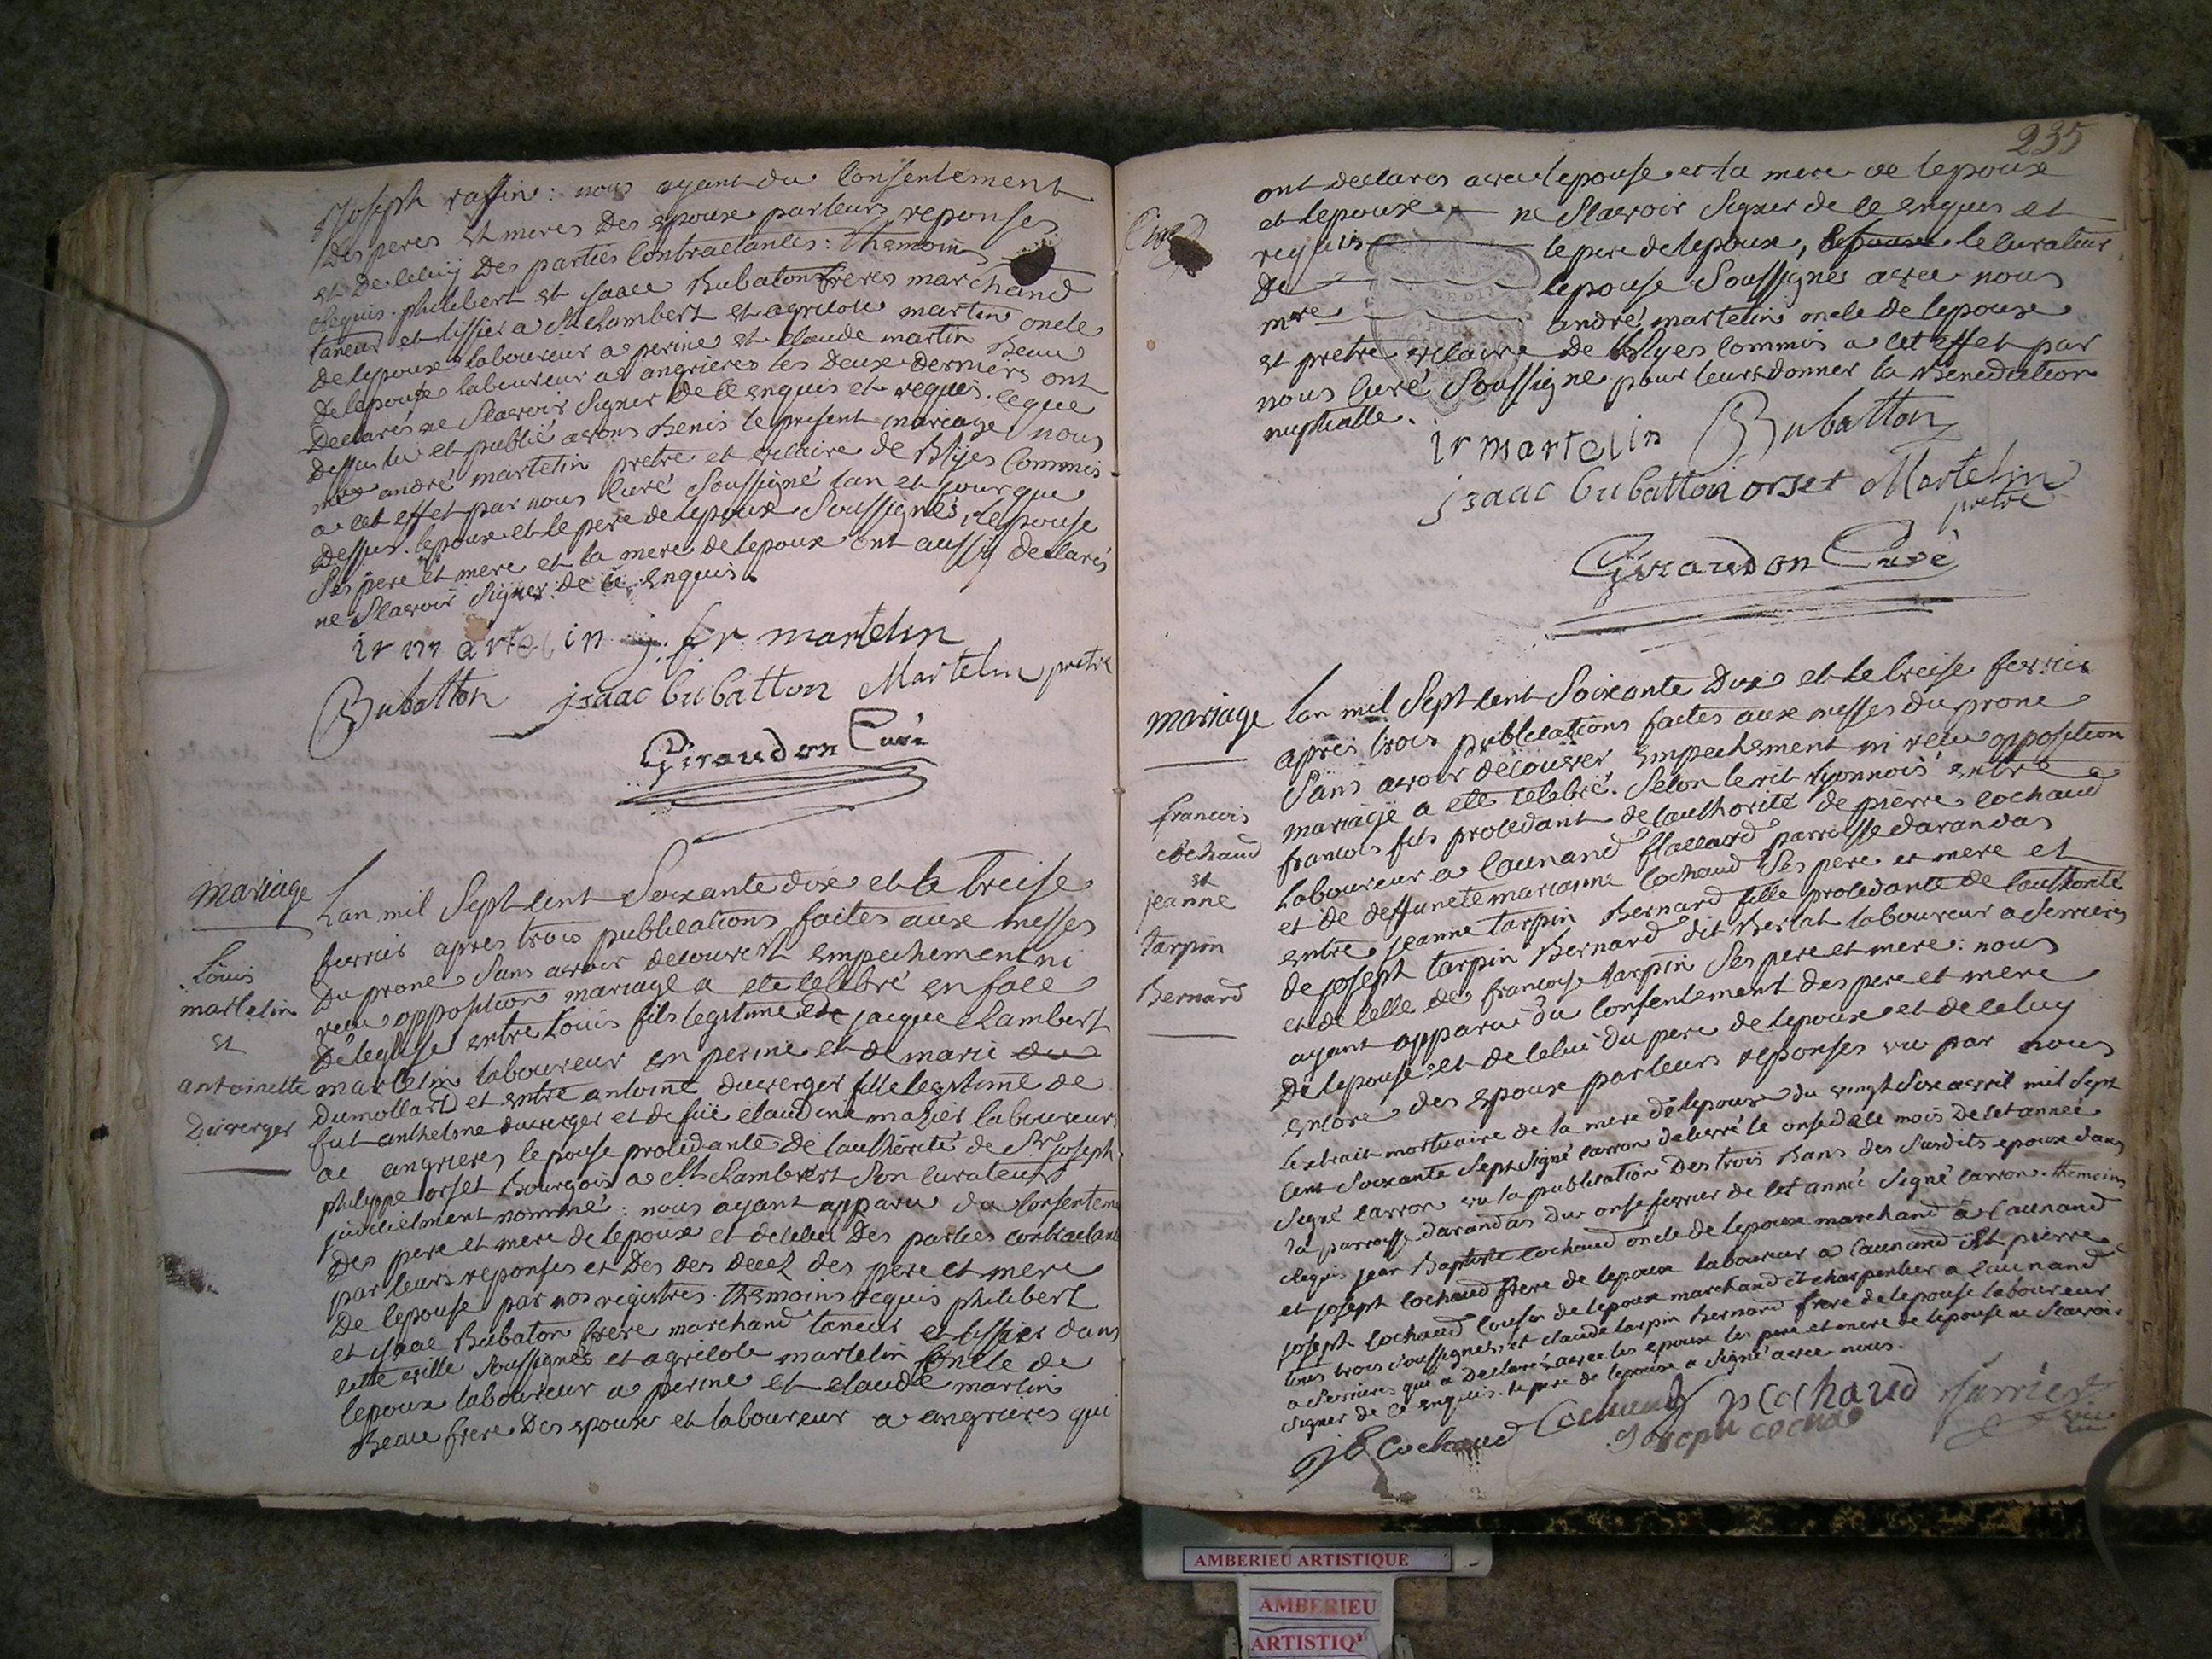 Joseph raffin: nous ayant du Consentement
des peres et meres des epoux par leurs reponses
et de celuy des parties Contractantes: themoins
requis philibert et isaac Bubaton freres marchand
taneur et tissier a St Rambert et agricole martin oncle
de lepoux laboureur a perine et claude martin Beau
laboureur a angrieres les deux derniers ont
declarés ne Scavoir Signer de ce enquis et requis. ce que
dessus lu et publié avons benis le present mariage nous
mre andré martelin pretre et vicaire de Blyes Commis
a cet effet par nous Curé Soussigné lan et jour que
dessus. lepoux et le pere de lepoux Soussignés, lepouse
Ses pere et mere et la mere de lepoux ont aussy declarés
ne Scavoir Signer de ce enquis.
ir martelin j. fr martelin
Bubatton isaac bubatton Martelin pretre
Giraudon Curé
mariage
Louis
martelin
et
antoinette
Duverger
Lan mil Sept cent Soixante dix et le treise
fevrier apres trois publications faites aux messes
du prone Sans avoir decouvert empechement ni
reçu opposition mariage a ete celebré en face
de leglise entre Louis fils legitime de jacque Rambert
martelin laboureur en perine et de marie du
dumollard et entre antoine duverger fille legitime de
fut anthelme duverger et de fue claudine mazier laboureur
a angrieres lepouse procedante de lauthorité de Sr Joseph
philippe orset Bourgois a St Rambert Son curateur
judiciellment nommé: nous ayant apparu du Consenteme
des pere et mere de lepoux et de celui des parties contractant
par leurs reponses et des des decez des pere et mere
de lepouse par nos registres. themoins requis philibert
et isaac Bubaton frere marchand taneur et tissier dans
cette ville soussignés et agricole martelin oncle de
lepoux laboureur a perine et claude martin
Beau frere des epoux et laboureur a angrieres qui
235
ont declarés avec lepouse et la mere de lepoux
et lepoux ne Scavoir Signer de ce enquis et
requis le pere de lepoux, lepouse le curateur
de lepouse Soussignés avec nous
mre andré martelin oncle de lepoux
et pretre vicaire de Blyes Commis a cet effet par
nous Curé Soussigné pour leurs donner la Benediction
nuptialle.
ir martelin Bubatton
isaac bubatton orset Martelin
pretre
Giraudon Curé
mariage
francois
cochaud
et
jeanne
tarpin
Bernard
Lan mil Sept cent Soixante Dix et le treise fevrier
après trois publications faites aux messes du prone
Sans avoir decouver empechement ni reçu opposition
mariage a ete celebré. Selon le rit lyonnois entre
francois fils procedant de lauthorité de pierre cochaud
laboureur a Caunand parroisse darandas
et de deffuncte marianne cochaud Ses pere et mere et
entre jeanne tarpin Bernard fille procedante de lauthorité
de joseph tarpin Bernard dit laboureur a Serrieres
et de celle de francoise tarpin Ses pere et mere: nous
ayant apparu du Consentement des pere et mere
de lepouse et de celui du pere de lepoux et de celuy
encore des epoux par leurs reponses vu par nous
lextrait mortuaire de la mere de lepoux du vingt Six avril mil Sept
cent Soixante Sept Signé carron delivré le onse de ce mois de cet année
Signé carron vu la publication des trois Bans des Susdits epoux dans
la parroisse darandas du onse fevrier de cet année Signé carron. themoins
requis jean Baptiste cochaud oncle de lepoux marchand a Caunand
et joseph cochaud frere de lepoux laboureur a Caunand et pierre
joseph cochaud Cousin de lepoux marchand et charpentier a Caunand
tous trois soussignés, et claude tarpin Bernard frere de lepouse laboureur
a Serrieres qui a Declaré avec les epoux les pere et mere de lepouse ne Scavoir
Signer de ce enquis. le pere de lepoux a Signé avec nous.
JB Cochaud Cochaud p Cochaud
Joseph cochad
AMBERIEU ARTISTIQUE
AMBERIEU
ARTISTIQ